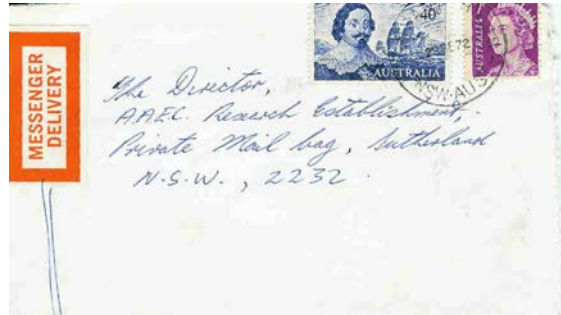 MESSENGER
DELIVERY
40c
AUSTRALIA
AUSTRALIA
72
NSW-AUS
The Director,
A.A.E.C. Research Establishment,
Private Mail bag, Sutherland
N.S.W., 2232.